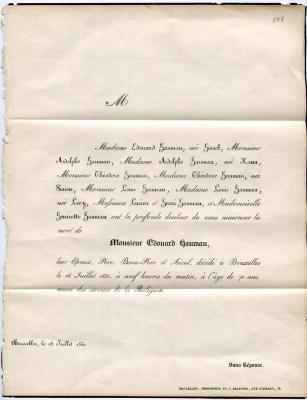 108
M
Madame Edouard Hauman, née Hasch, Monsieur
Adolphe Hauman, Madame Adolphe Hauman, née
Monsieur Théodore Hauman, Madame Théodore Hauman, née
Simon, Monsieur Louis Hauman, Madame Louis Hauman,
née Levy, Messieurs Lucien et Henri Hauman, et Mademoiselle
Hauman ont la profonde douleur de vous annoncer la
mort de
Monsieur Edouard Hauman,
leur Epoux, Père, Beau-Père et Aïeul, décédé à Bruxelles
le 16 Juillet à neuf heures du matin, à l'âge de ans,
muni des secours de la Religion.
Bruxelles, le 16
Sans Réponse.
BRUXELLES, IMPRIMERIE DE J.